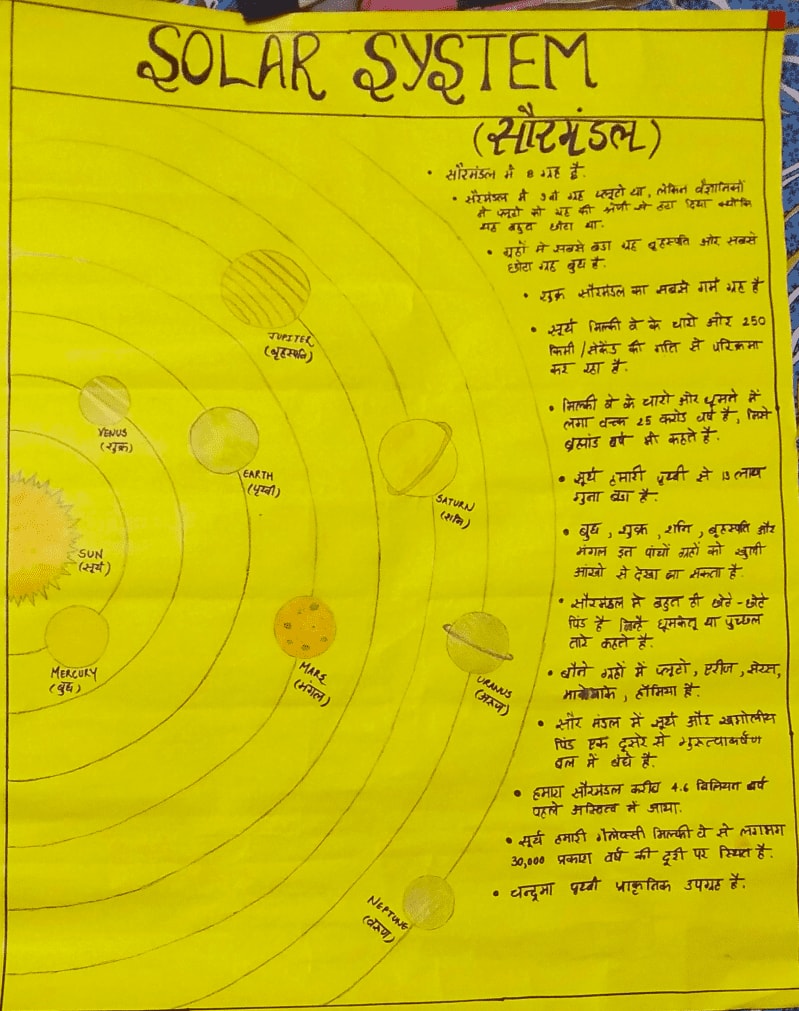 SOLAR SYSTEM
(सौरमंडल)
• सौरमंडल में 8 ग्रह है.
• सौरमंडल में 9 वा ग्रह प्लूटो था, लेकिन वैज्ञानिकों
ने प्लूटो को ग्रह की श्रेणी से हटा दिया क्योंकि
यह बहुत छोटा था.
• ग्रहों में सबसे बडा ग्रह बृहस्पति और सबसे
छोटा ग्रह बुध है.
• शुक्र सौरमंडल का सबसे गर्म ग्रह है
• सूर्य मिल्की वे के चारो और 250
किमी/सेकेंड की गति से परिक्रमा
कर रहा है.
• मिल्की वे के चारो और घूमने में
लगा वक्त 25 करोड वर्ष है, जिसे
ब्रह्मांड वर्ष भी कहते है.
• सूर्य हमारी पृथ्वी से 13 लाख
गुना बडा है.
• बुध, शुक्र, शनि, बृहस्पति और
मंगल इन पांचों ग्रहों को खुली
आंखो से देखा जा सकता है.
• सौरमंडल में बहुत ही छोटे-छोटे
पिंड है जिन्हें धूमकेतू या पुच्छल
तारे कहते है.
• बौने ग्रहों में प्लूटो, एरीज, सेरस,
हौमिया है.
• सौर मंडल में सूर्य और खगोलीय
पिंड एक दूसरे से गुरुत्वाकर्षण
बल में बंधे है.
• हमारा सौरमंडल करीब 4.6 बिलियन वर्ष
पहले अस्तित्व में आया.
• सूर्य हमारी गैलेक्सी मिल्की वे से लगभग
30,000 प्रकाश वर्ष की दूरी पर स्थित है.
• चन्द्रमा पृथ्वी प्राकृतिक उपग्रह है.
JUPITER
(बृहस्पति)
VENUS
(शुक्र)
EARTH
(पृथ्वी)
SATURN
(शनि)
SUN
(सूर्य)
MERCURY
(बुध)
MARS
(मंगल)
URANUS
(अरुण)
NEPTUNE
(वरुण)